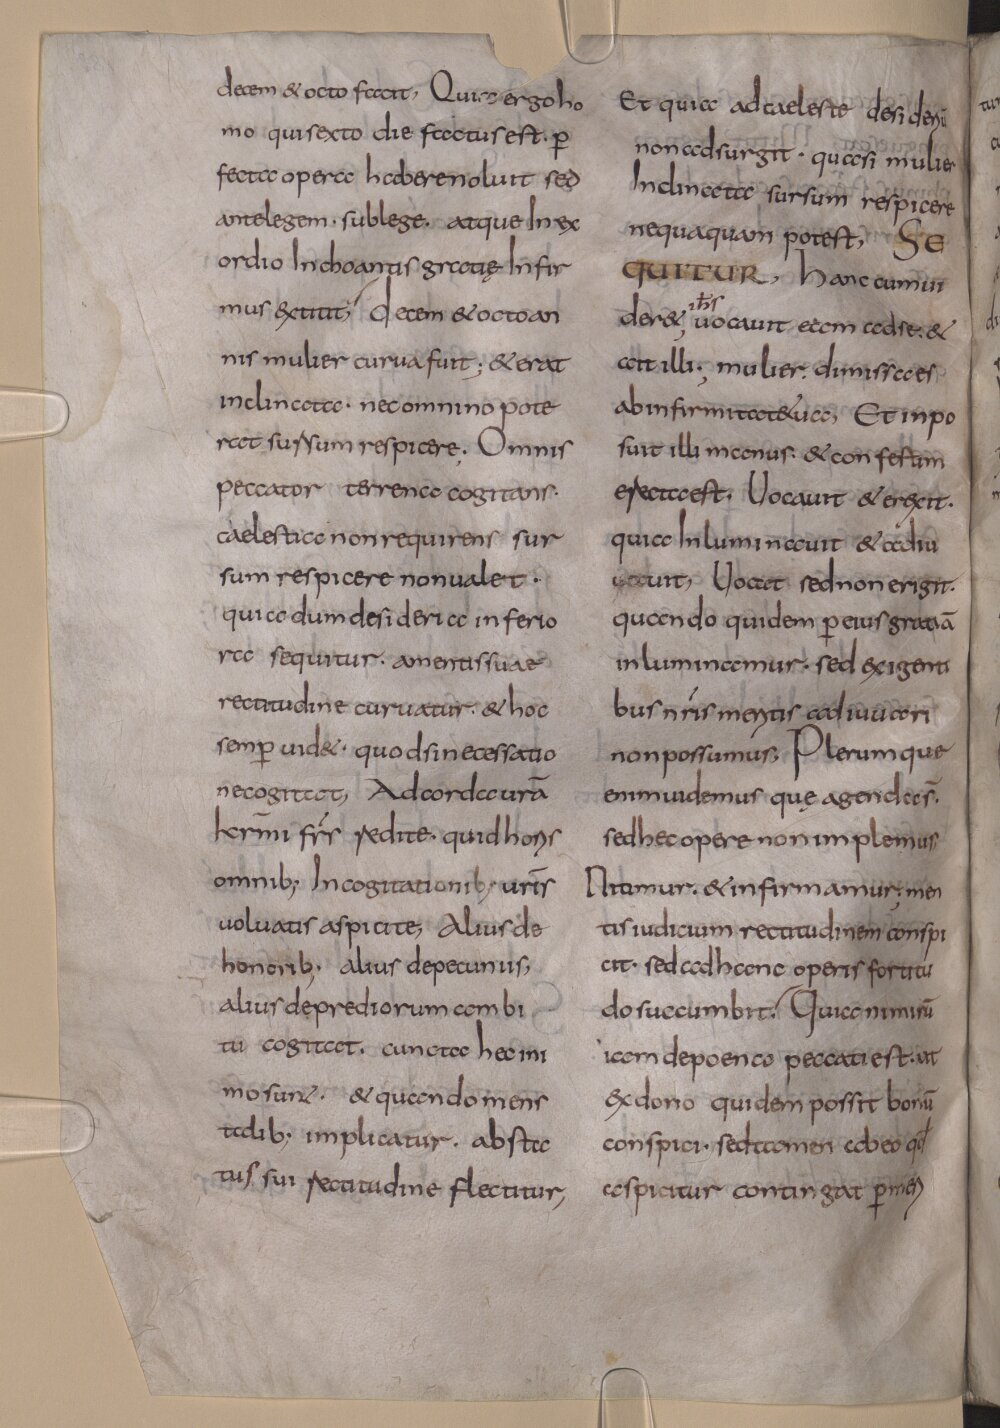 decem & octo facit, Quia ergo ho
mo qui sexto die factus est. p̱
fecta opera habere noluit sed
ante legem. sub lege. atque In ex
ordio Inchoantis gratię Infir
mus extitit; decem & octo an
nis mulier curva fuit; & erat
inclinata. nec omnino pote
rat sursum respicere; Omnis
peccator terrena cogitans.
caelestia non requirens sur
sum respicere non valet.
quia dum desideria inferio
ra sequitur. a mentis suae
rectitudine curvatur. & hoc
semp̱ uid&. quod sine cessatio
ne cogitat, Ad corda urā
kar̄mi fr̄s redite. quid horis
omnib; In cogitationib; uris̄
voluatis aspicite; Alius de
honorib; alius de pecuniis,
alius de prediorum ambi
tu cogitat. cuncta hec in i
mo sunt. & quando mens
talib; implicatur. ab sta
tus sui rectitudine flectitur,
Et quia ad caeleste desideriū
non adsurgit. quasi mulier
Inclinata sursum respicere
nequaquam potest, SE
QUITUR, hanc cum ui
der& ih̄s uocauit eam ad se. &
ait illi; mulier. dimissa es
ab infirmitate tua, Et inpo
suit illi manus. & confestim
erecta est. Uocauit & erexit.
quia Inluminauit & adiu
uauit, Uocat sed non erigit.
quando quidem p̱ eius gratiā
inluminamur. sed exigenti
bus nr̄is meritis adiuuari
non possumus, Plerumque
enim uidemus quę agenda s̄.
sed hec opere non implemus.
Nitimur. & infirmamur; men
tis iudicium rectitudinem conspi
cit. sed ad hanc operis fortitu
do succumbit. Quia nimirū
iam de poena peccati est. ut
ex dono quidem possit bonū
conspici. sed tamen ab eo qd̄
aspicitur contingat p̱ meri